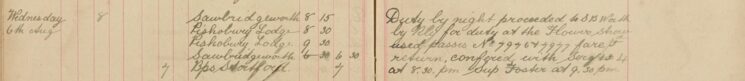 Wednesday 8 Sawbridgeworth 8 15 Duty by night proceeded to SB Worth
6th Aug Pishobury Lodge 8 30 by Rly for duty at the Flower Show
Pishobury Lodge 9 30 used passes No 79967 fare &
Sawbridgeworth 6 30 6 30 return, conferred with Sergt
7 Bps Stortford 7 at 8.30 pm Sup Foster at 9.30 pm